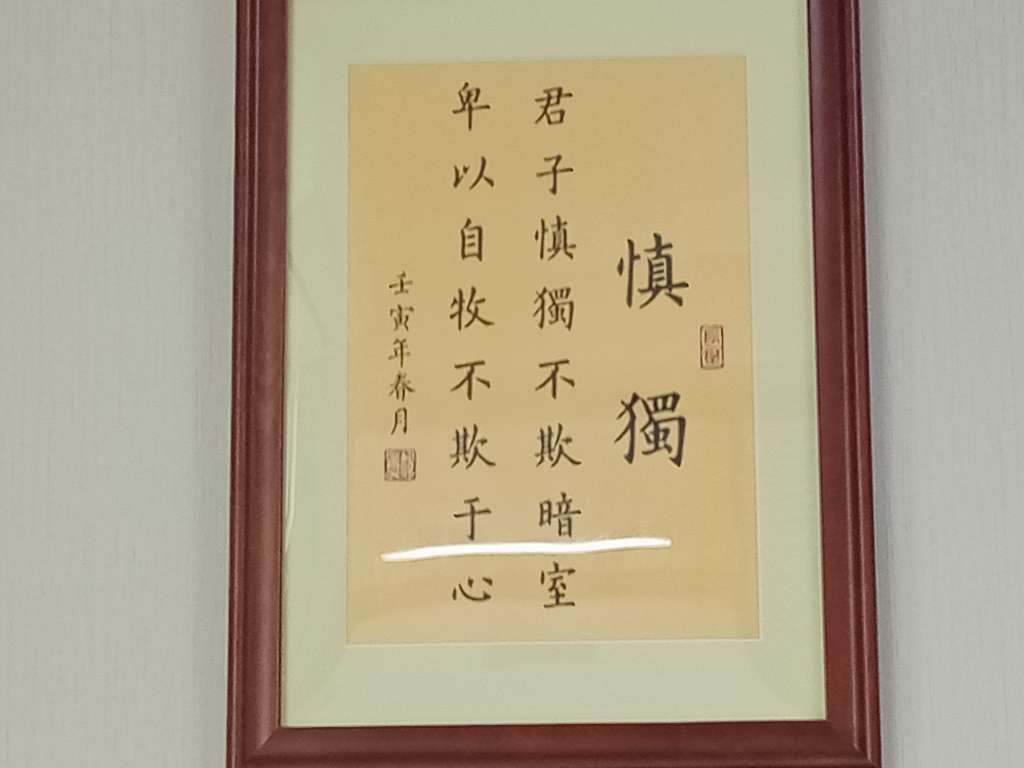 慎獨
君子慎獨不欺暗室
卑以自牧不欺于心
壬寅年春月